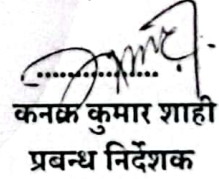 कनक कुमार शाही
प्रबन्ध निर्देशक